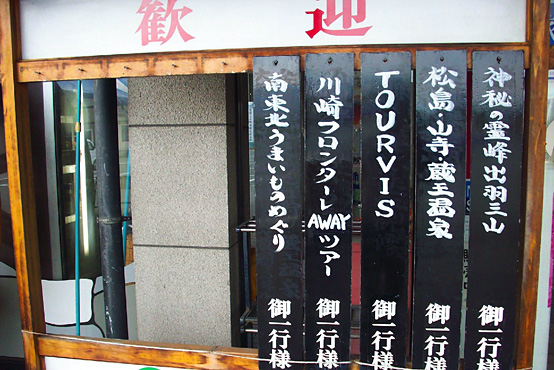 歓迎
神秘の霊峰出羽三山 御一行様
松島・山寺・蔵王温泉 御一行様
TOURVIS 御一行様
川崎フロンターレAWAYツアー 御一行様
南東北うまいものめぐり 御一行様